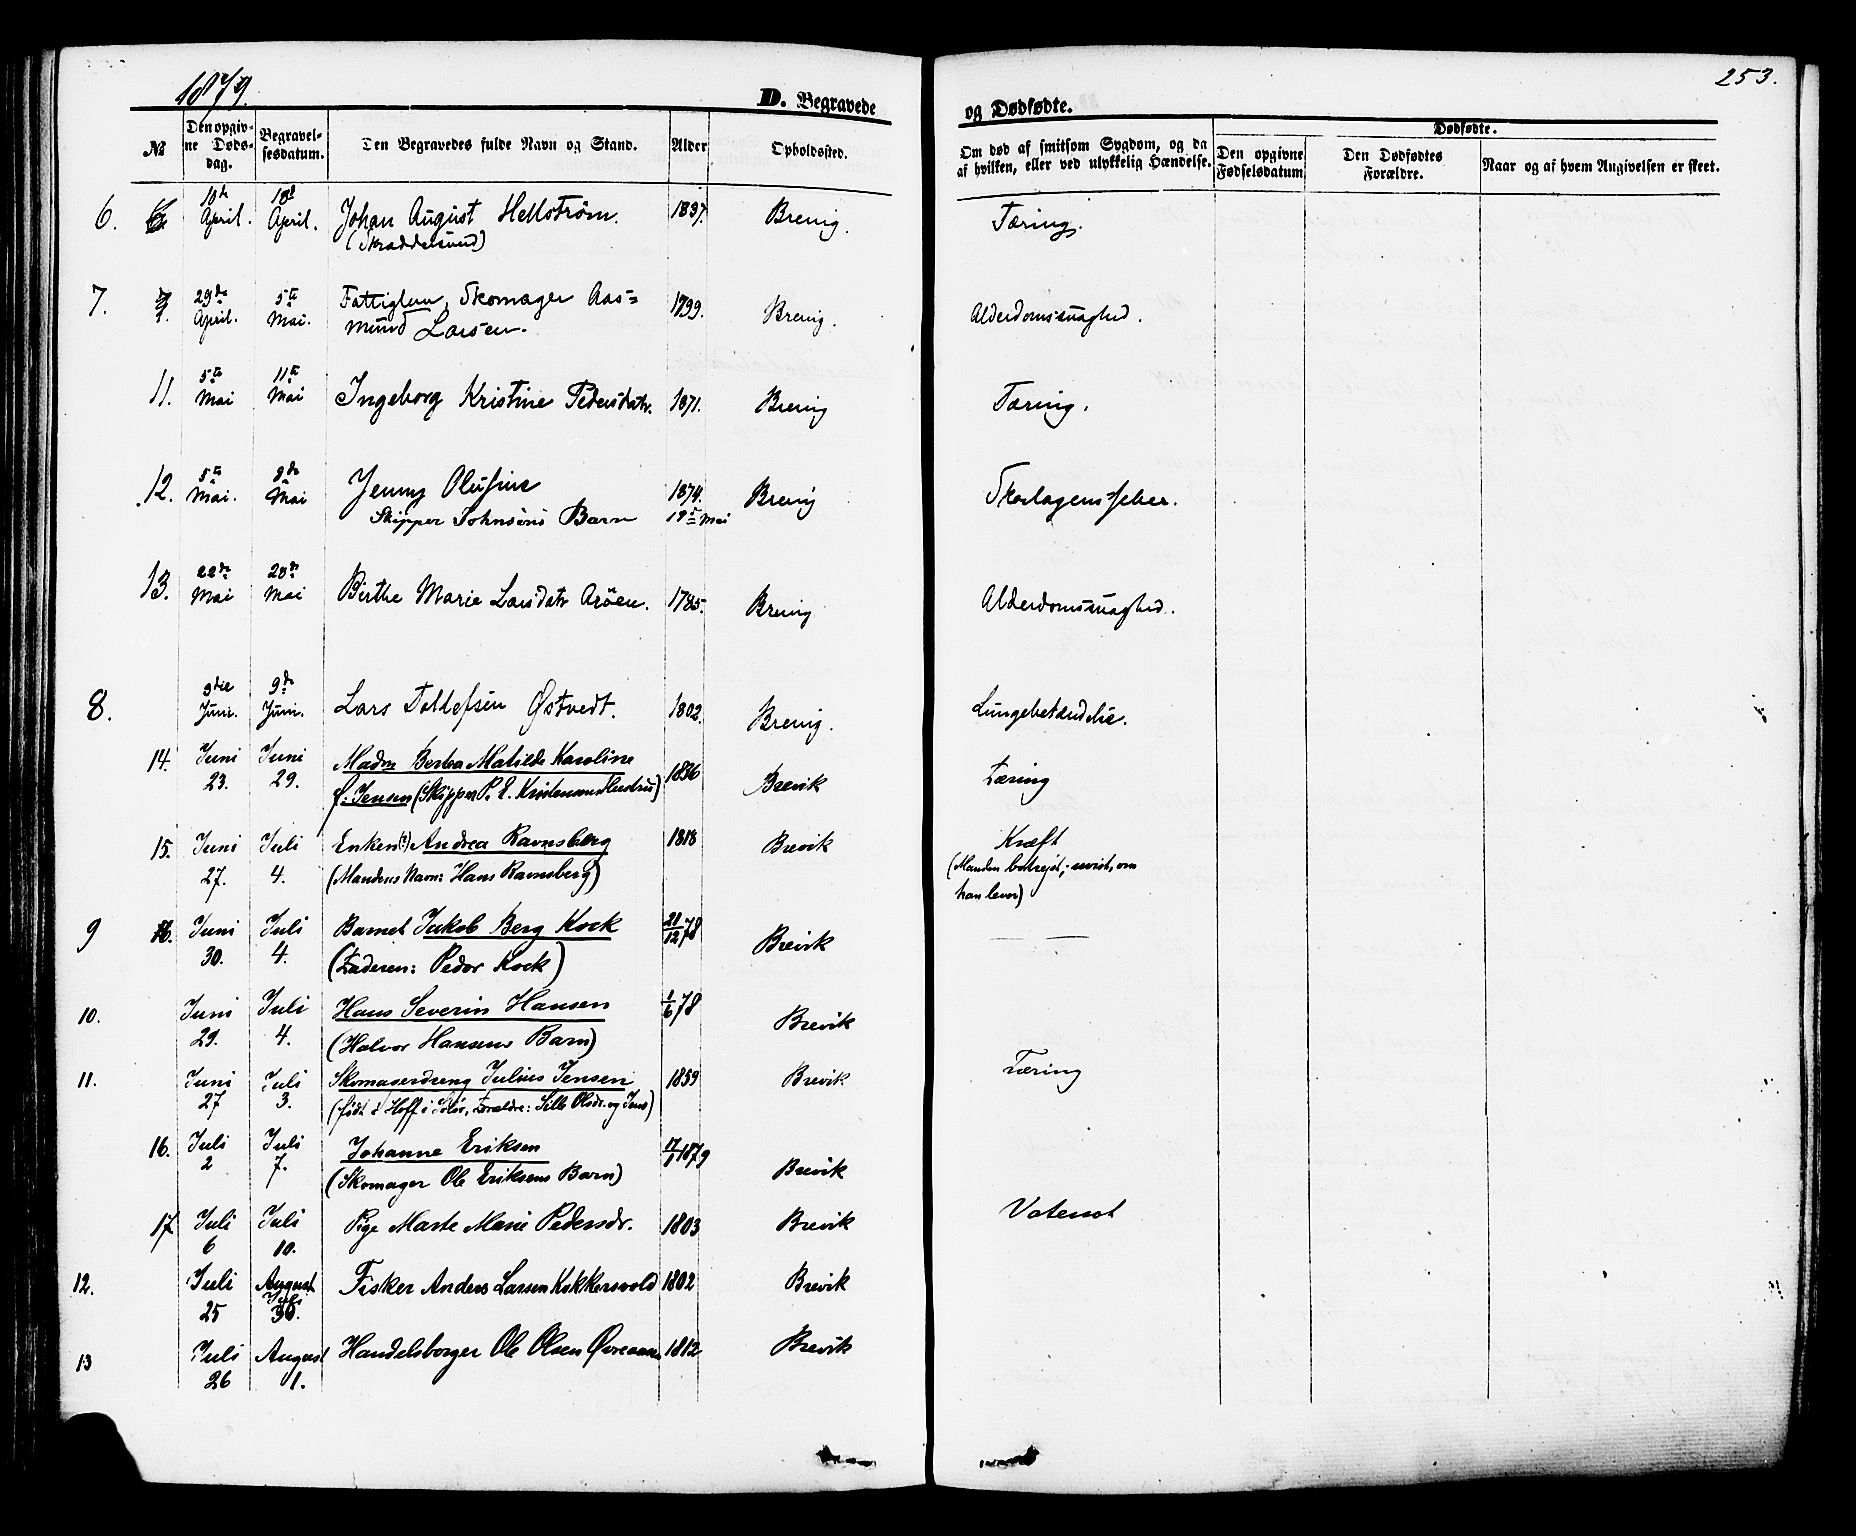 1879.
253.
D. Begravede
og Dødfødte.
№
Den opgivne Døds-dag.
Begravel-sesdatum.
Den Begravedes fulde Navn og Stand.
Alder
Opholdssted.
Om død af smitsom Sygdom, og da af hvilken, eller ved ulykkelig Hændelse.
Dødfødte.
Den opgivne Fødselsdatum
Den Dødfødtes Forældre.
Naar og af hvem Angivelsen er skeet.
6. April. April. Johan August Hellstrøm. 1837. Brevig. Tæring.
7. 29de April. 5te Mai. Fattiglem, Skomager Aas= 1799. Brevig. Alderdomssvaghed.
mund Larsen.
11. 5te Mai 11te Mai Ingeborg Kristine Pedersdatr. 1871. Brevig Tæring.
12. 5te Mai. 9de Mai Jenny Olufine 1874. Brevig Skarlagensfeber.
Skipper Johnsens Barn 19de Mai
13. 22de Mai 28de Mai Birthe Marie Larsdatr Arøen. 1785. Brevig Alderdomssvaghed.
8. 3die Juni. 9de Juni. Lars Tollefsen Østvedt. 1802. Brevig. Lungebetændelse.
14. Juni 23. Juni 29. Madm Bertha Matilde Karoline 1836 Brevik Tæring
f: Jensen (Skipper P. E. Kristensens Hustru)
15. Juni 27. Juli 4. Enken(?) Andrea Ravnsberg 1818 Brevik Kræft
(Mandens Navn: Hans Ravnsberg) (Manden bortrejst; uvist, om
han lever)
9 16. Juni 30. Juli 4. Barnet Jakob Berg Kock 21/12 78 Brevik
(Faderen: Peder Kock)
10. Juni 29. Juli 4. Hans Severin Hansen 1/6 78 Brevik
(Halvor Hansens Barn)
11. Juni 27 Juli 3. Skomagerdreng Julius Jensen 1859 Brevik Tæring
(født i Hoff i Solør, Forældre: Sille Olsdr. og Jens)
16. Juli 2 Juli 7. Johanne Eriksen 1879 Brevik
(Skomager Ole Eriksens Barn)
17. Juli 6 Juli 10. Pige Marte Marie Pedersdr. 1803 Brevik Vatersot
12. Juli 25 August Juli 30. Fisker Anders Larsen Kokkersvold 1802 Brevik
13 Juli 26 August 1. Handelsborger Ole Olsen Øvreaas 1812 Brevik